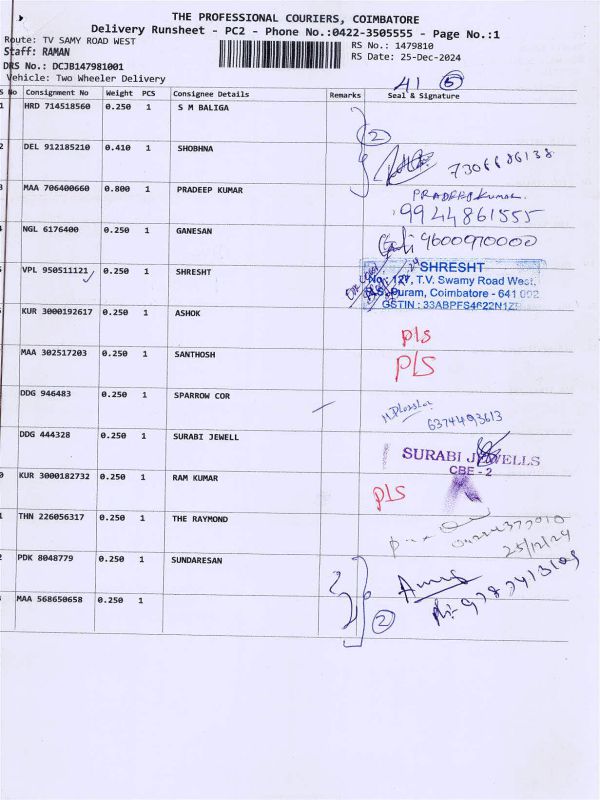 THE PROFESSIONAL COURIERS, COIMBATORE
Delivery Runsheet - PC2 - Phone No.:0422-3505555 - Page No.:1
Route: TV SAMY ROAD WEST
RS No.: 1479810
Staff: RAMAN
RS Date: 25-Dec-2024
DRS No.: DCJB147981001
Vehicle: Two Wheeler Delivery
41 5
S No Consignment No Weight PCS Consignee Details Remarks Seal & Signature
1 HRD 714518560 0.250 1 S M BALIGA
2
2 DEL 912185210 0.410 1 SHOBHNA
7306686138
3 MAA 706400660 0.800 1 PRADEEP KUMAR PRADEEP Kumar
9944861555
NGL 6176400 0.250 1 GANESAN 9600970000
VPL 950511121 0.250 1 SHRESHT SHRESHT
No: 127, T.V. Swamy Road West,
R.S. Puram, Coimbatore - 641 002
GSTIN : 33ABPFS4622N1Z
KUR 3000192617 0.250 1 ASHOK pls
MAA 302517203 0.250 1 SANTHOSH PLS
DDG 946483 0.250 1 SPARROW COR
6374493613
DDG 444328 0.250 1 SURABI JEWELL SURABI JEWELLS
CBE - 2
KUR 3000182732 0.250 1 RAM KUMAR PLS
THN 226056317 0.250 1 THE RAYMOND
25/12/24
PDK 8048779 0.250 1 SUNDARESAN
MAA 568650658 0.250 1
2